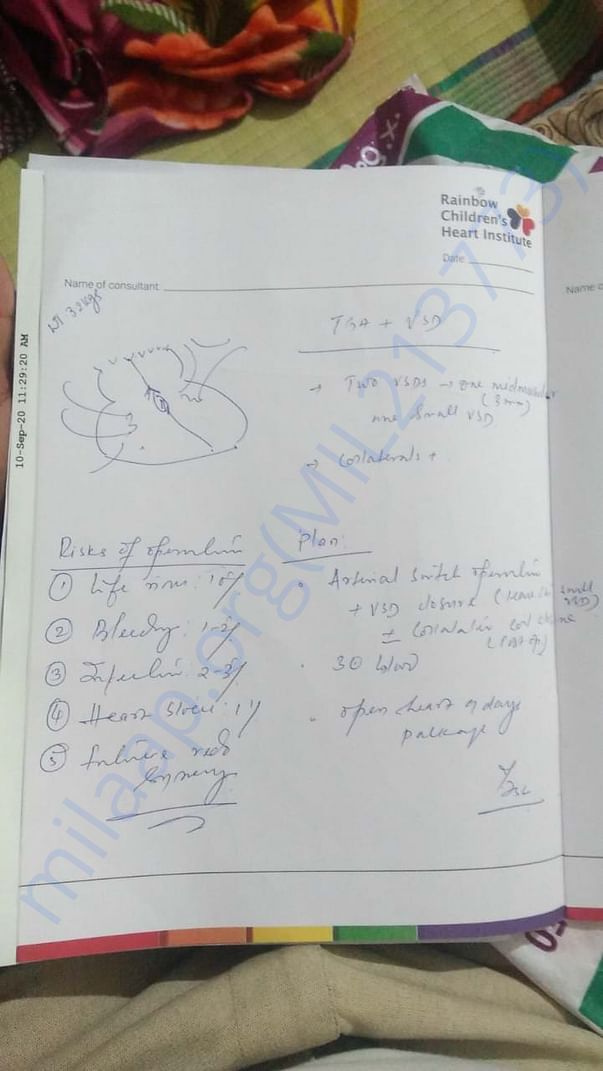 Rainbow
Children's
Heart Institute
Date
Name of consultant
Name o
10-Sep-20 11:29:20 AM
Wt 3.2 kgs
TGA + VSD
→ Two VSDs → one midmuscular
(3 mm)
one small VSD
→ Collaterals +
Risks of operation
① Life risk:
② Bleeding: 1-2%
③ Infection: 2-3%
④ Heart block: 1%
⑤ Future redo
surgery
Plan:
Arterial switch operation
+ VSD closure (leave small
VSD)
± Collateral coil closure
(Post op)
30 blood
open heart 9 days
package
milaap.org(MIL213773)